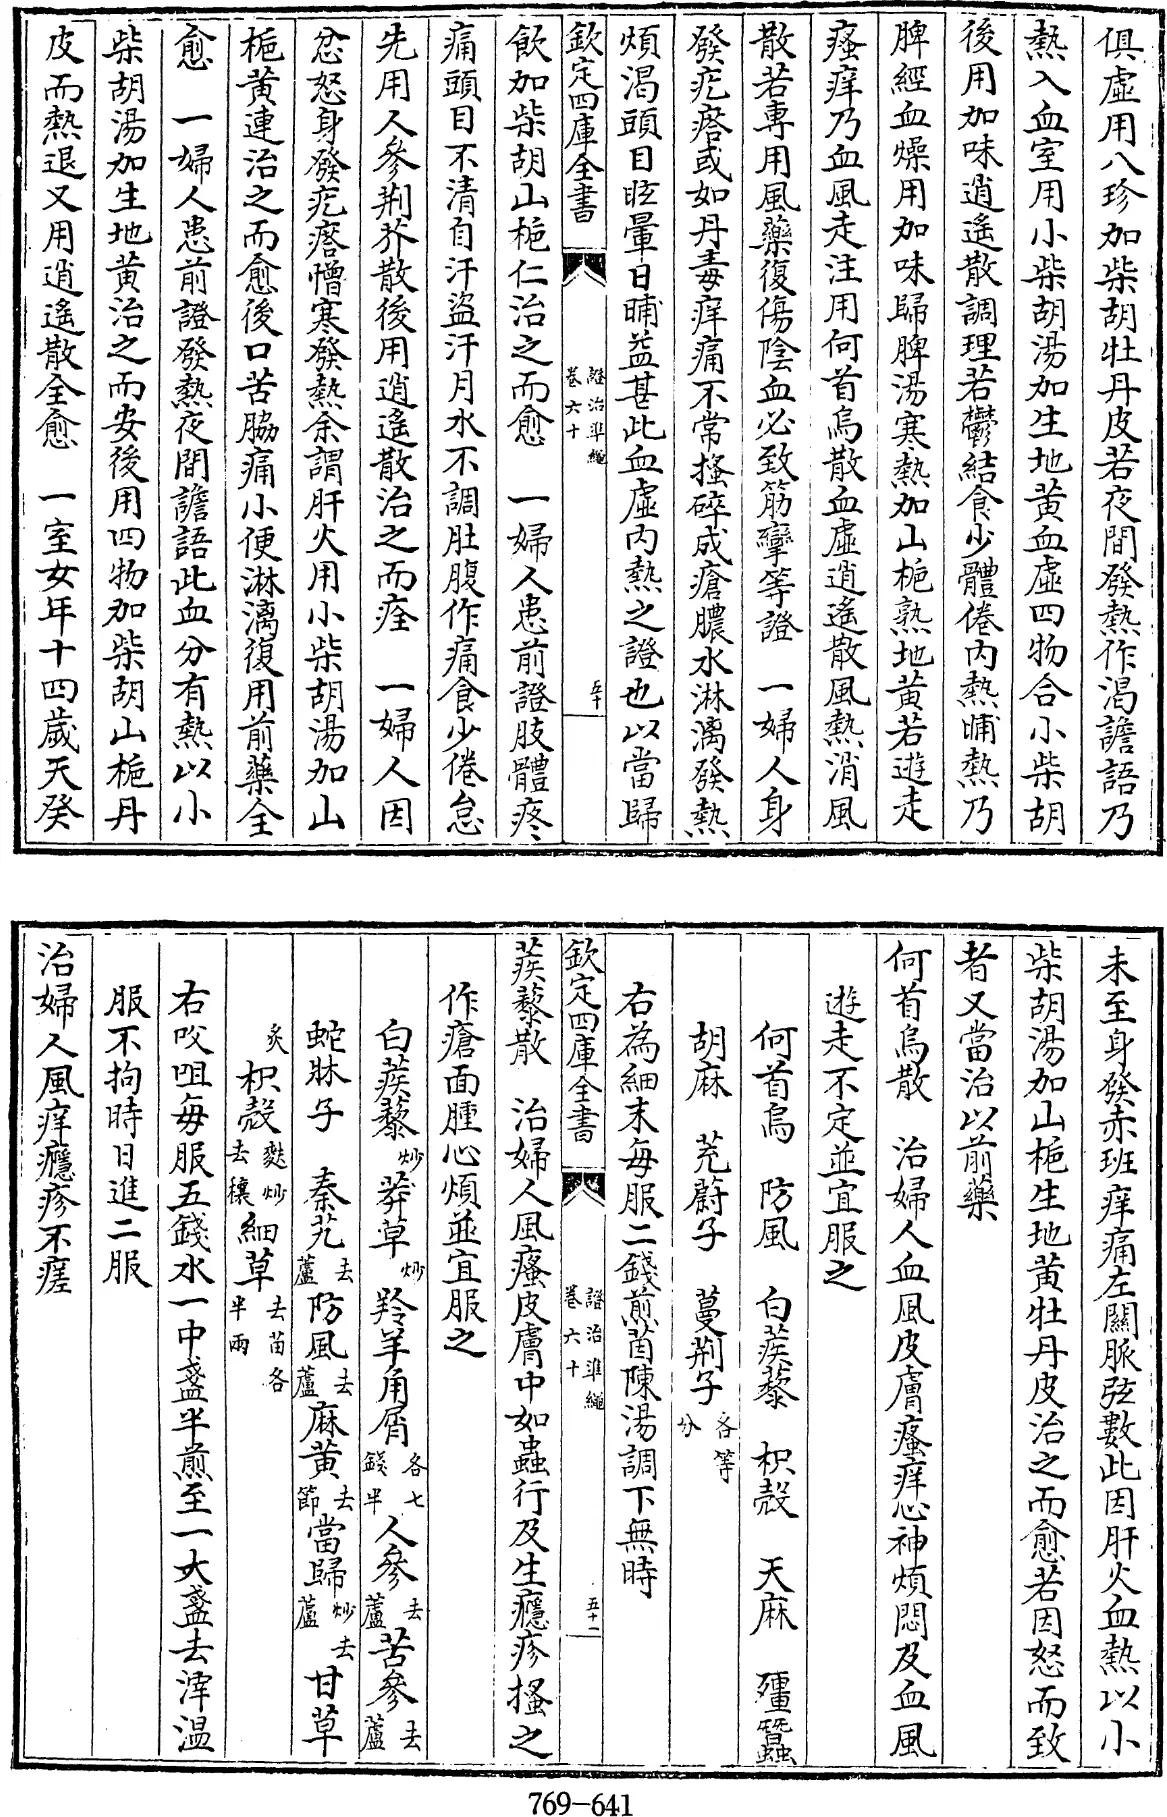 俱虛用八珍加柴胡牡丹皮若夜間發熱作渴譫語乃
熱入血室用小柴胡湯加生地黃血虛四物合小柴胡
後用加味逍遙散調理若鬱結食少體倦內熱晡熱乃
脾經血燥用加味歸脾湯寒熱加山梔熟地黃若遊走
瘙痒乃血風走注用何首烏散血虛逍遙散風熱消風
散若專用風藥復傷陰血必致筋攣等證　一婦人身
發疙瘩或如丹毒痒痛不常搔碎成瘡膿水淋漓發熱
煩渴頭目眩暈日晡益甚此血虛內熱之證也以當歸
欽定四庫全書
證治準繩
卷六十
五十
飲加柴胡山梔仁治之而愈　一婦人患前證肢體疼
痛頭目不清自汗盜汗月水不調肚腹作痛食少倦怠
先用人參荆芥散後用逍遙散治之而痊　一婦人因
忿怒身發疙瘩憎寒發熱余謂肝火用小柴胡湯加山
梔黃連治之而愈後口苦脇痛小便淋漓復用前藥全
愈　一婦人患前證發熱夜間譫語此血分有熱以小
柴胡湯加生地黃治之而安後用四物加柴胡山梔丹
皮而熱退又用逍遙散全愈　一室女年十四歲天癸
未至身發赤班痒痛左關脈弦數此因肝火血熱以小
柴胡湯加山梔生地黃牡丹皮治之而愈若因怒而致
者又當治以前藥
何首烏散　治婦人血風皮膚瘙痒心神煩悶及血風
遊走不定並宜服之
何首烏　防風　白蒺藜　枳殼　天麻　殭蠶
胡麻　茺蔚子　蔓荆子各等分
右為細末每服二錢煎茵陳湯調下無時
欽定四庫全書
證治準繩
卷六十
五十一
蒺藜散　治婦人風瘙皮膚中如蟲行及生癮疹搔之
作瘡面腫心煩並宜服之
白蒺藜炒　莽草炒　羚羊角屑各七錢半　人參去蘆　苦參去蘆
蛇牀子　秦艽去蘆　防風去蘆　麻黃去節　當歸炒去蘆　甘草
炙　枳殼麩炒去穰　細草去苗各半兩
右㕮咀每服五錢水一中盞半煎至一大盞去滓溫
服不拘時日進二服
治婦人風痒癮疹不瘥
769-641